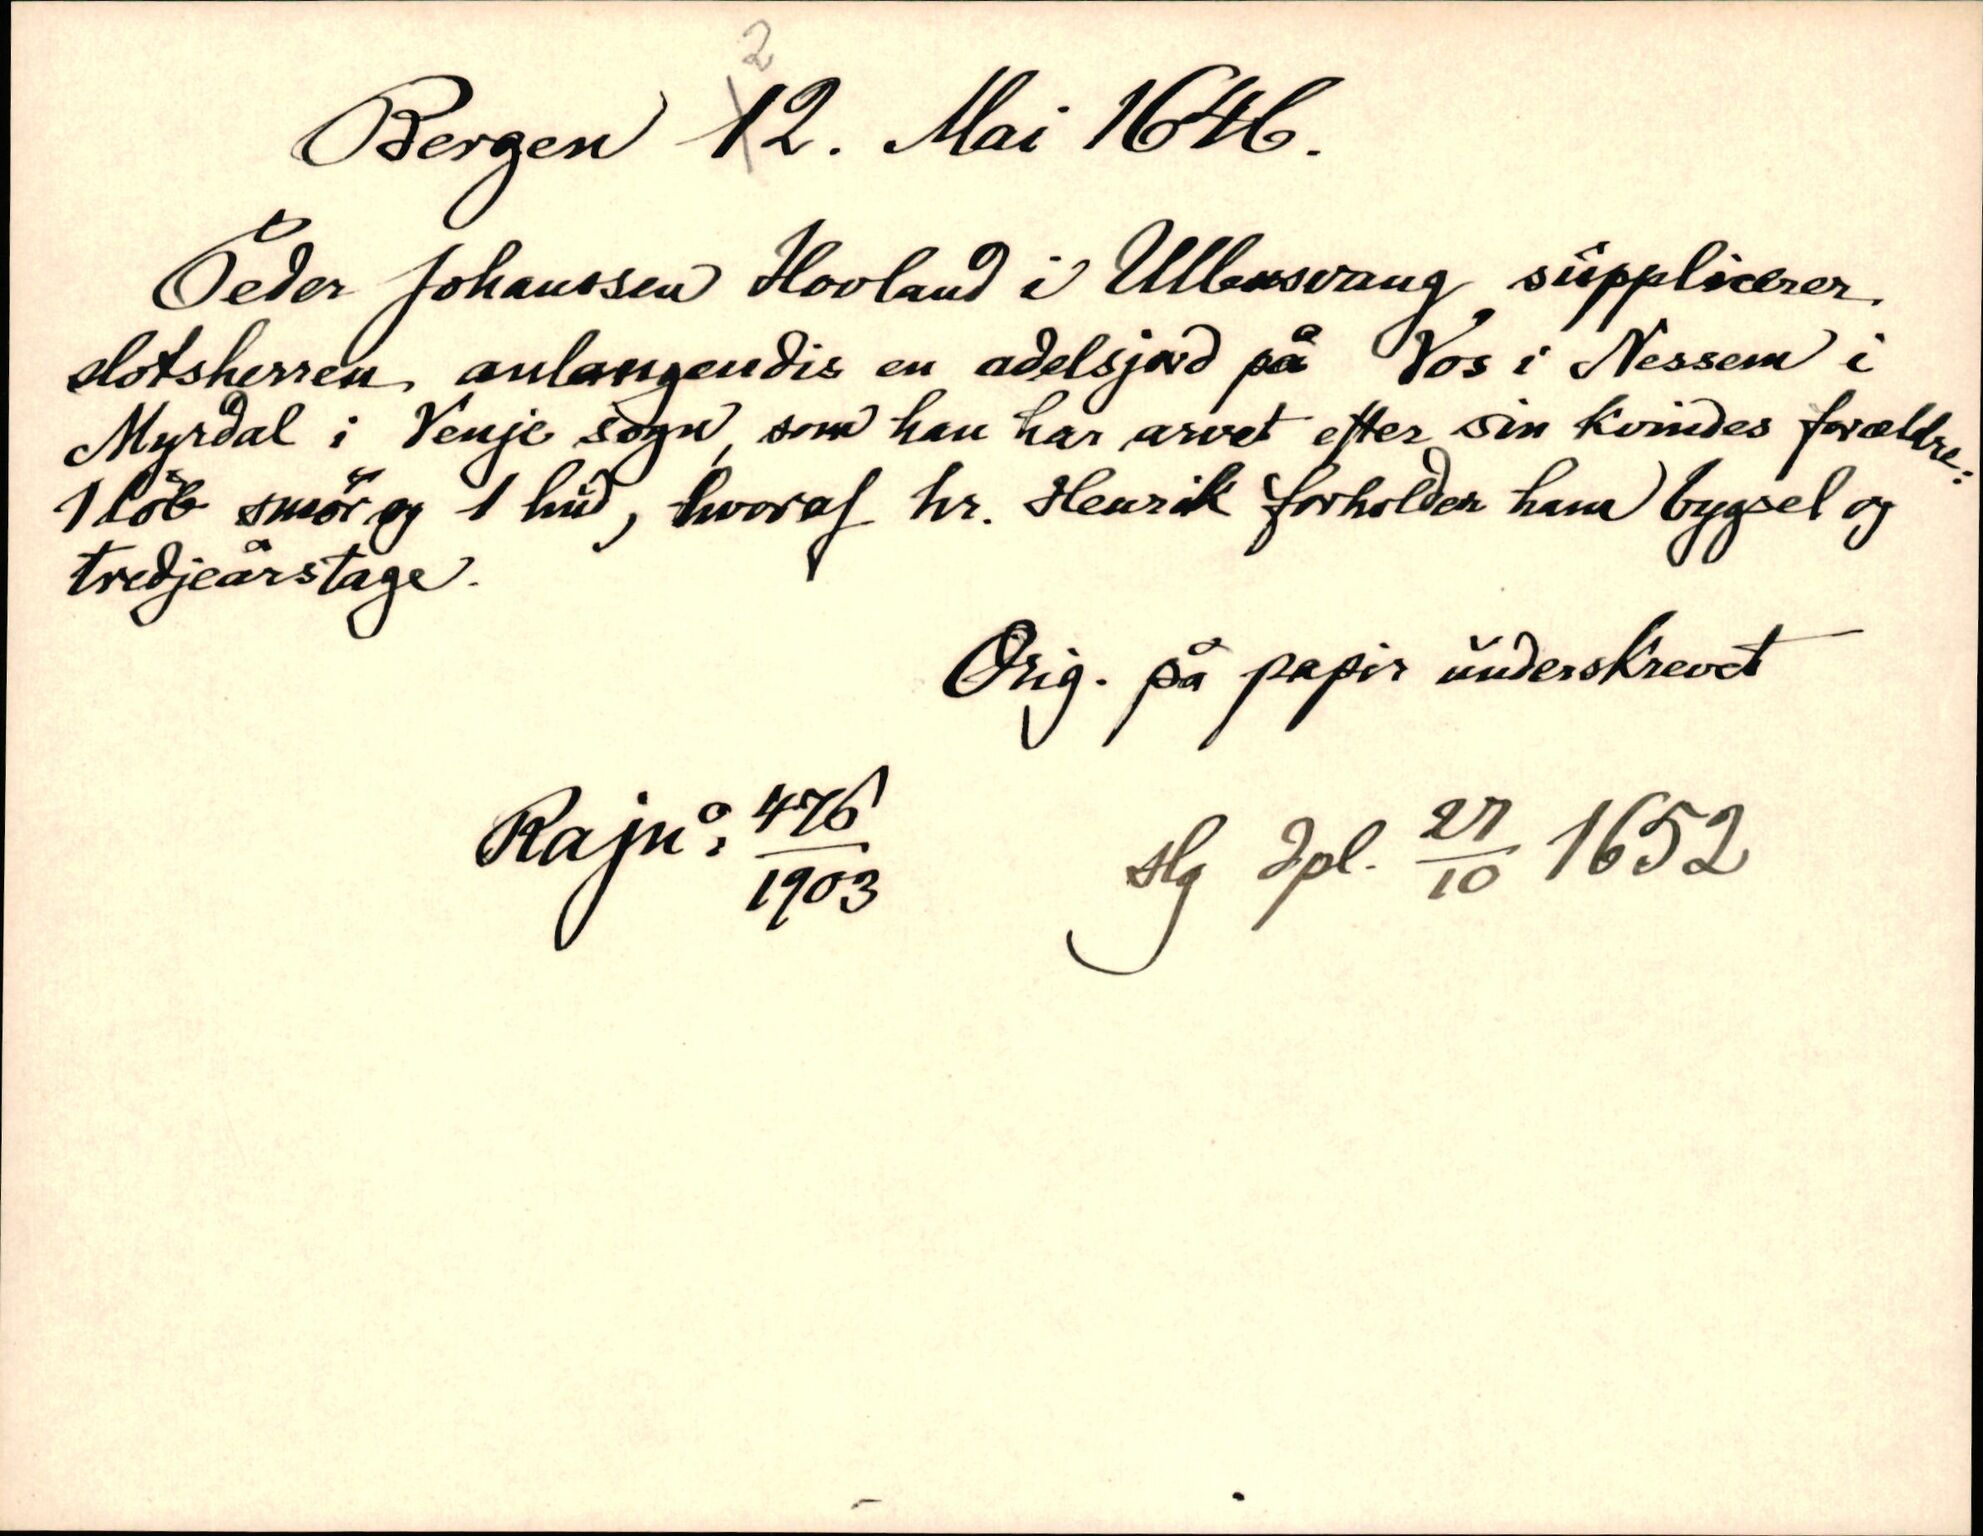 Bergen 12. Mai 1646.
2
Peder Johanssen Hovland i Ullensvang süpplicerer
slotsherren anlangendis en adelsjord på Vos i Nessem i
Myrdal i Venje sogn, som han har arvet efter sin kvindes forældre:
1 löb smör og 1 hüd, hvoraf hr. Henrik forholder ham bygsel og
tredjeårstage.
Orig. på papir ünderskrevet
Ra jno: 476/1903
slg dpl. 27/10 1652